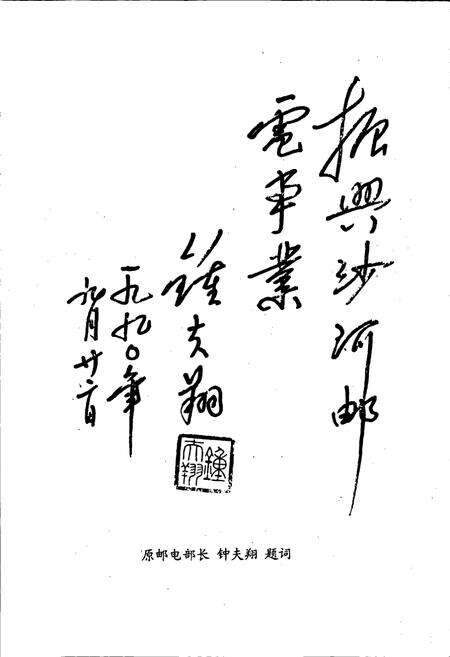 振興沙河邮
電事業
鍾夫翔
一九九〇年
九月廿六日
鍾夫翔
原邮电部长 钟夫翔 题词